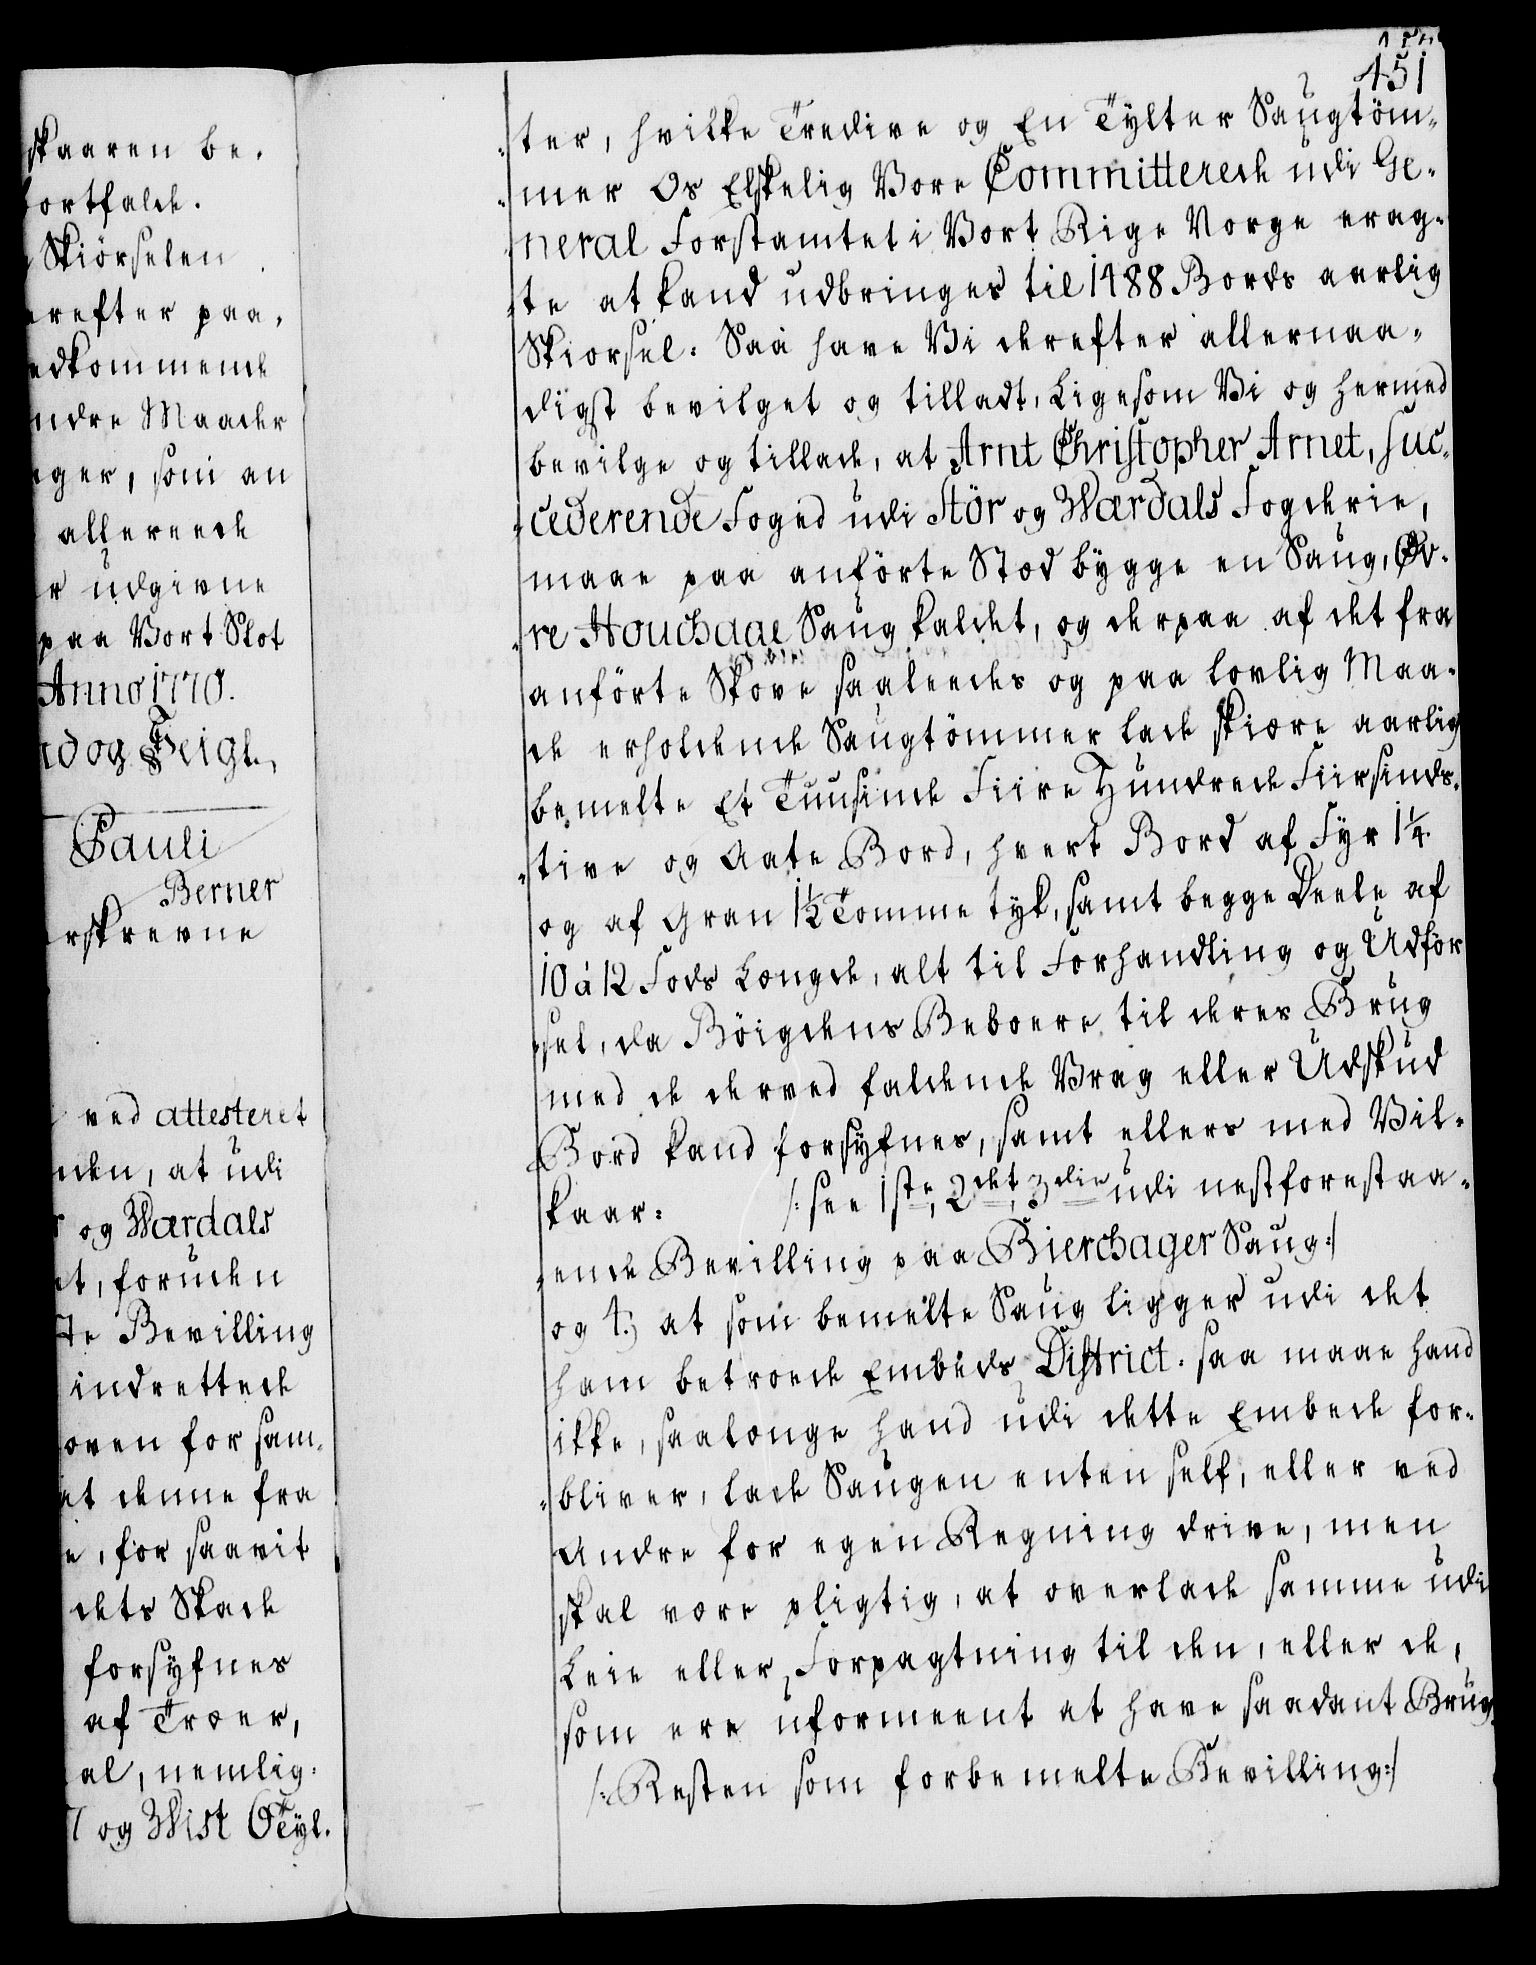 skaaren be-
bortfalde.
Skiörselen
erefter paa-
edkommende
ndre Maader
ger, som an
allereede
r udgivne
paa Vort Slot
Anno 1770.
rd og Seigl.
Pauli
Berner
rskrevne
ved attesteret
nden, at udi
og Wærdals
et, foruden
te Bevilling
indrettede
oven for sam-
at denne fra
e, for saavit
dets Skade
forsyfnes
af Træer,
al, nemlig:
7 og Wist 6 Tyl-
451
ter, hvilke Tredive og En Tylter Saugtöm-
mer Os Elskelig Vore Committerede udi Ge-
neral Forstamtet i Vort Rige Norge erag-
te at kand udbringes til 1488 Bords aarlig
Skiorsel: Saa have Vi derefter allernaa-
digst bevilget og tilladt, Ligesom Vi og hermed
bevilge og tillade, at Arnt Christopher Arnet, Suc-
cederende Foged udi Stör og Wærdals Fogderie,
maae paa anförte Stæd bygge en Saug, Øv-
re Houchaae Saug kaldet, og derpaa af det fra
anförte Skove saaleedes og paa lovlig Maa-
de erholdende Saugtömmer lade skiære aarlig
bemelte Et Tuusinde Fiire Hundrede Fiirsinds-
tive og Aate Bord, hvert Bord af Fyr 1 1/4
og af Gran 1 1/2 Tomme tyk, samt begge Deele af
10 à 12 Fods Længde, alt til Forhandling og Udför
sel, da Böigdens Beboere til deres Brug
med de derved faldende Vrag eller Udskud
Bord kand forsyfnes, samt ellers med Vil-
kaar: /: see 1ste, 2det, 3die udi nestforestaa-
ende Bevilling paa Bierchager Saug :/
og 4.) at som bemelte Saug ligger udi det
ham betroede Embeds District. saa maae hand
ikke, saalænge hand udi dette Embede for-
bliver, lade Saugen enten self, eller ved
Andre for egen Regning drive, men
skal være pligtig, at overlade samme udi
Leie eller Forpagtning til den, eller de,
som ere uformeent at have saadant Brug.
/: Resten som forbemelte Bevilling :/